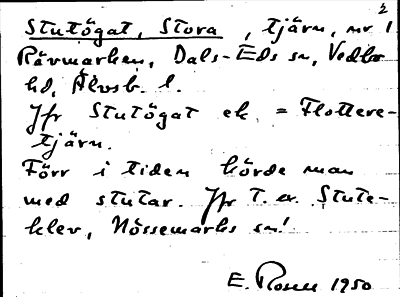 2
Stutögat, Stora, tjärn, nr 1
Rävmarken, Dals-Eds sn, Vedbo
hd, Älvsb. l.
Jfr Stutögat ek. = Flottere-
tjärn.
Förr i tiden körde man
med stutar. Jfr t. ex. Stute-
klev, Nössemarks sn!
E. Rosell 1950